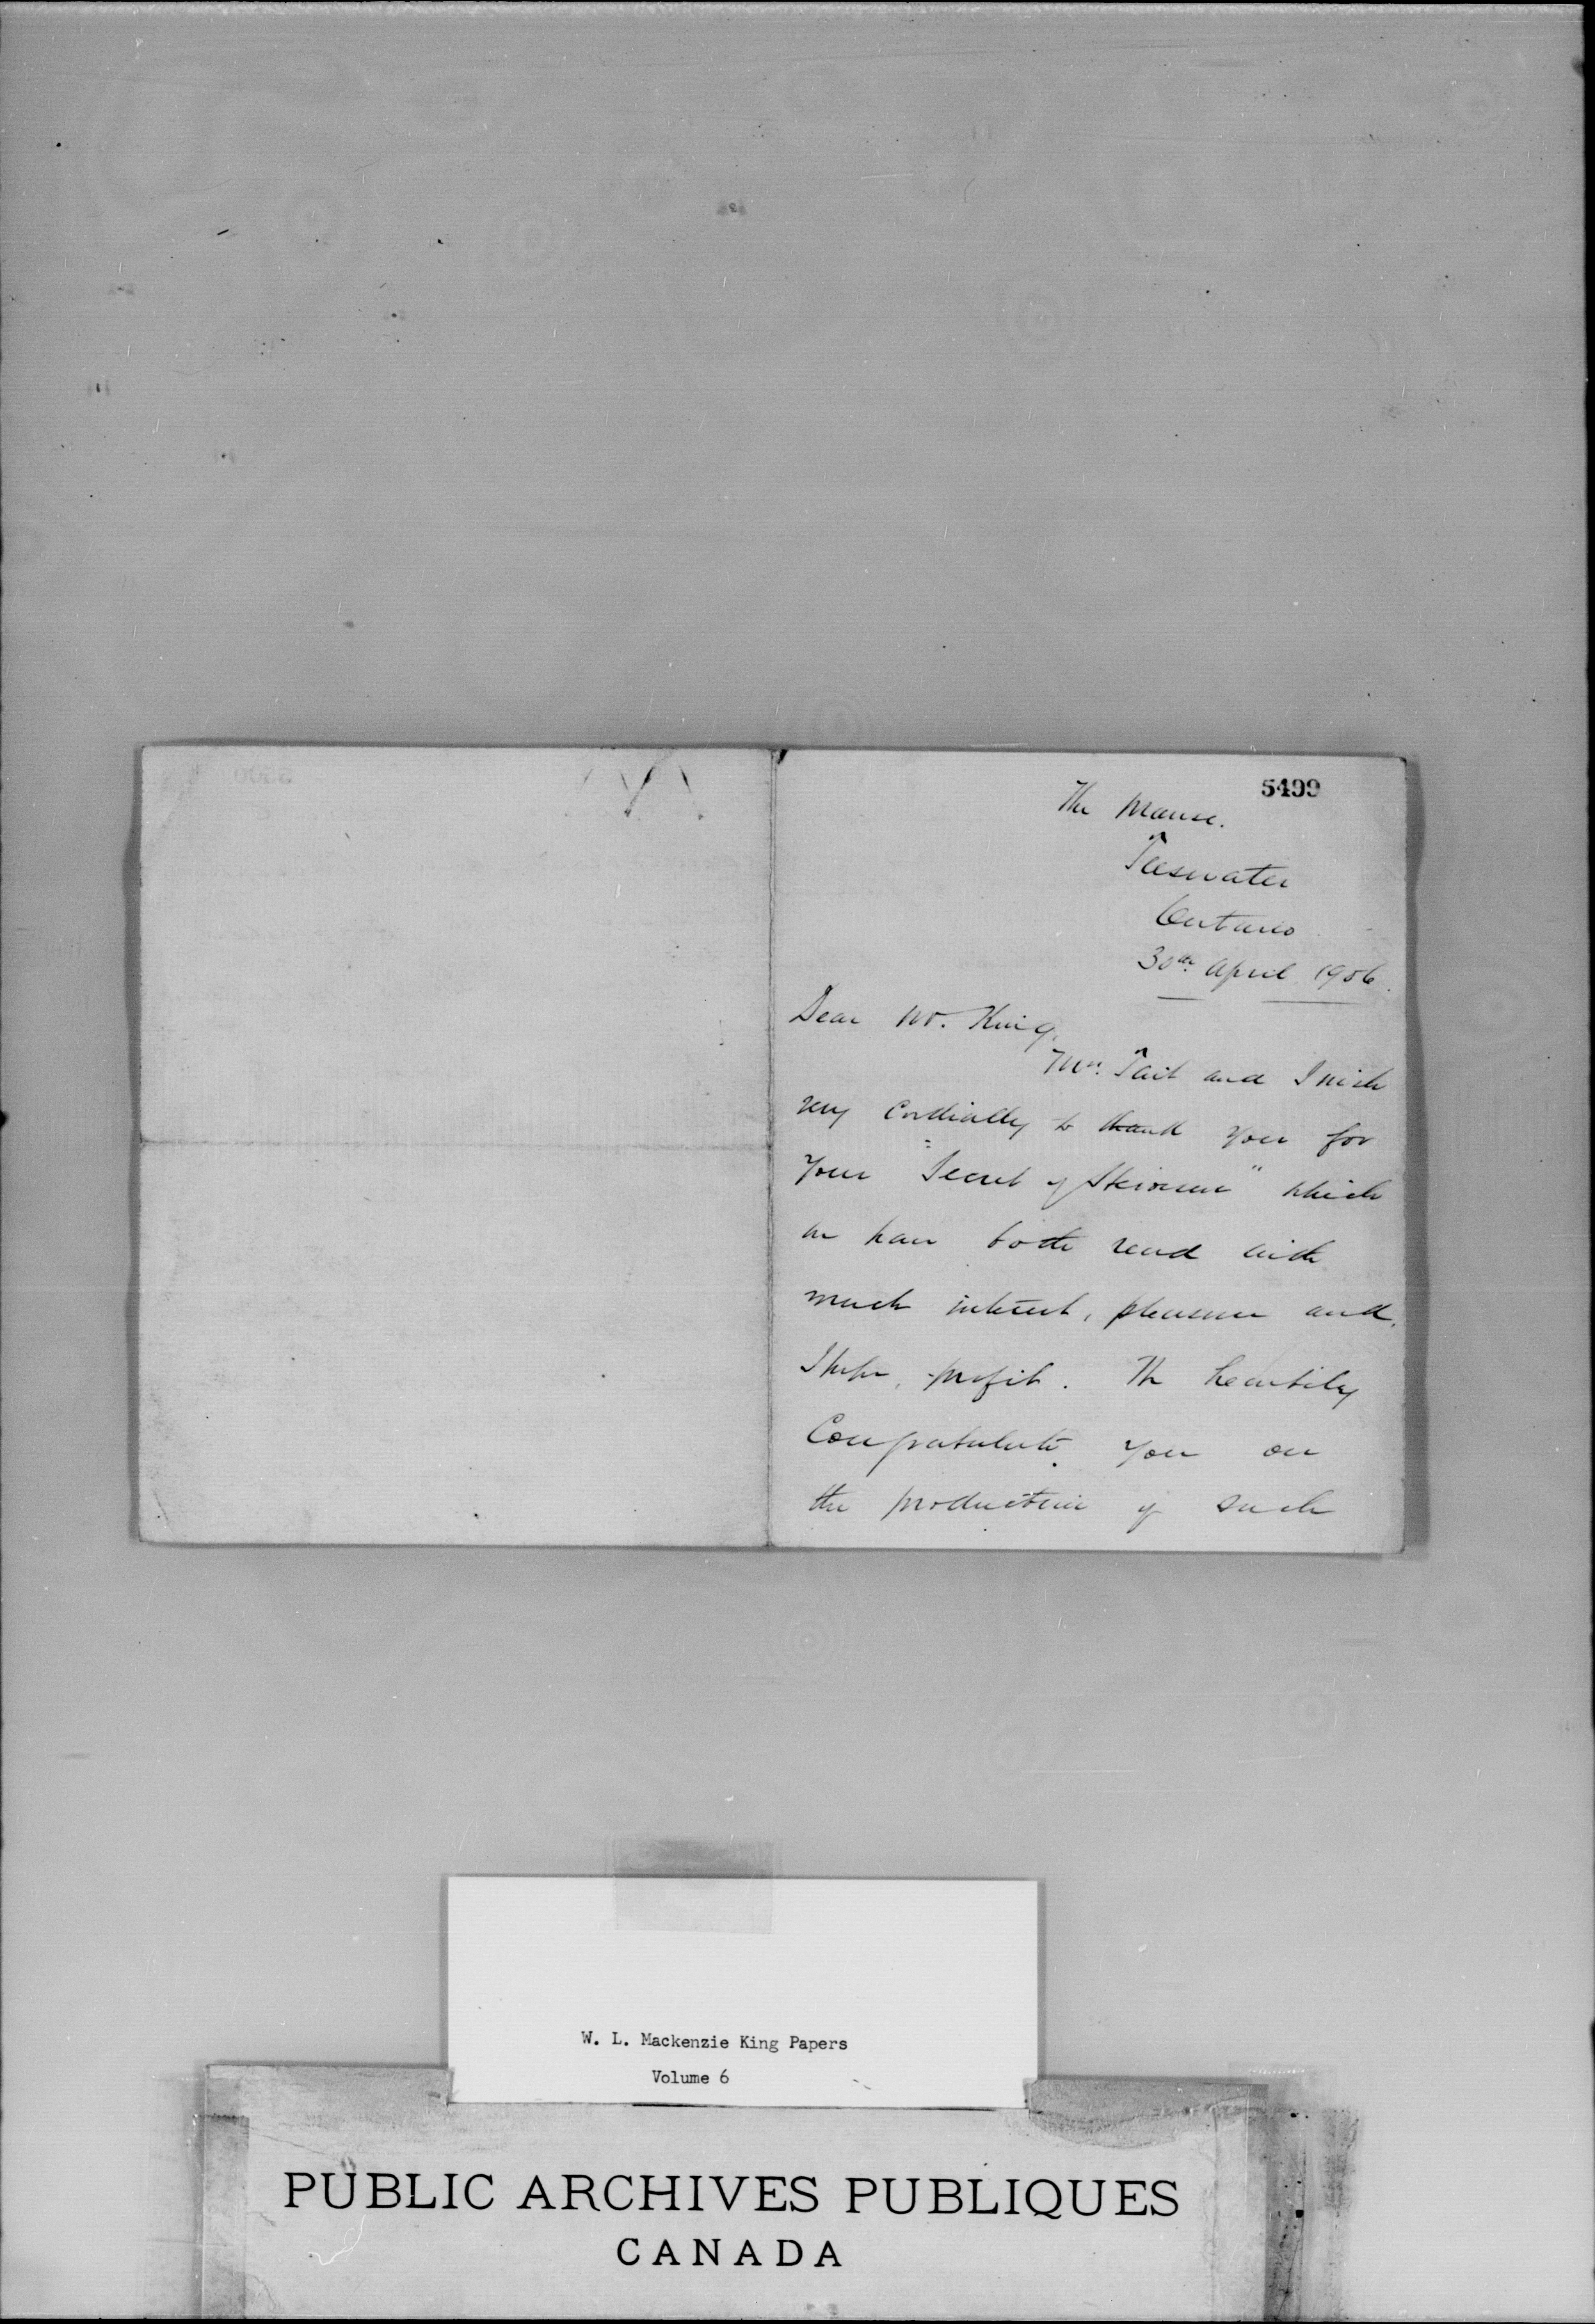 5499
The Manse.
Teeswater
Ontario
30th April 1906.
Dear Mr. King,
Mrs. Tait and I wish
very cordially to thank you for
your "Secret of Heroism" which
we have both read with
much interest, pleasure and,
I hope, profit. We heartily
Congratulate you on
the production of such
W. L. Mackenzie King Papers
Volume 6
PUBLIC ARCHIVES PUBLIQUES
CANADA